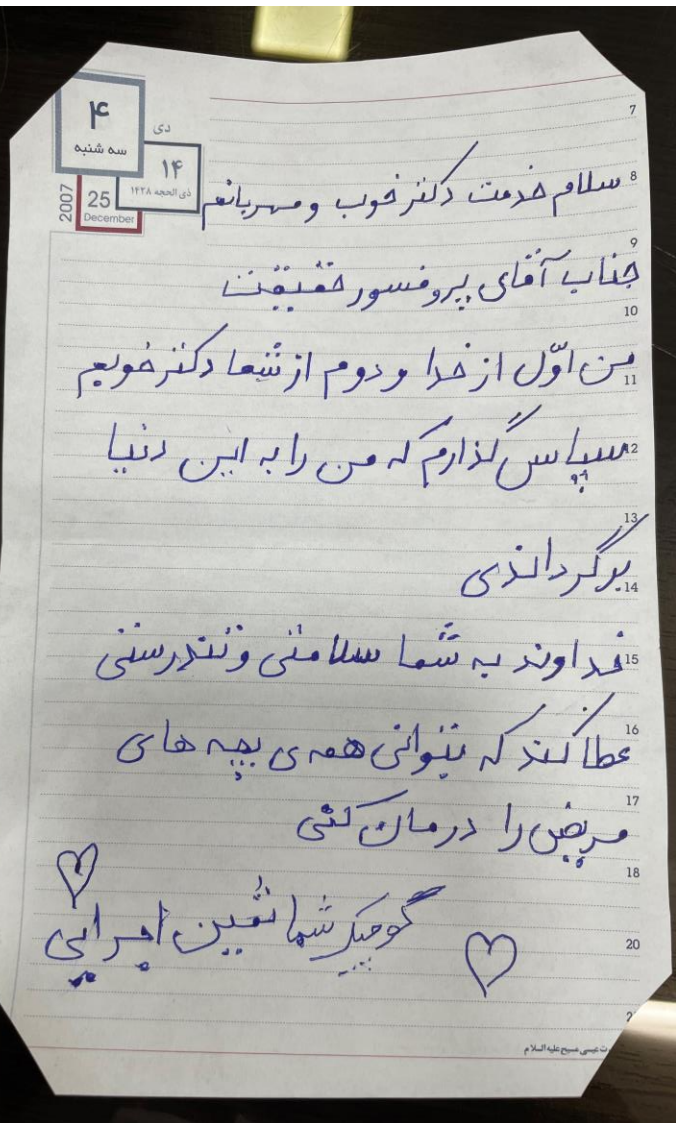 ۴
دی
سه شنبه
۱۴
ذی الحجه ۱۴۲۸
2007
25
December
7
8
سلام خدمت دکتر خوب و مهربانم
9
جناب آقای پروفسور حقیقت
10
من اوّل از خدا و دوم از شما دکتر خوبم
11
12
سپاس گذارم که من را به این دنیا
13
برگرداندی
14
15
خداوند به شما سلامتی و تندرستی
16
عطا کند که بتوانی همه ی بچه های
17
مریض را درمان کنی
18
کوچیک شما ثمین
20
عیسی مسیح علیه السلام